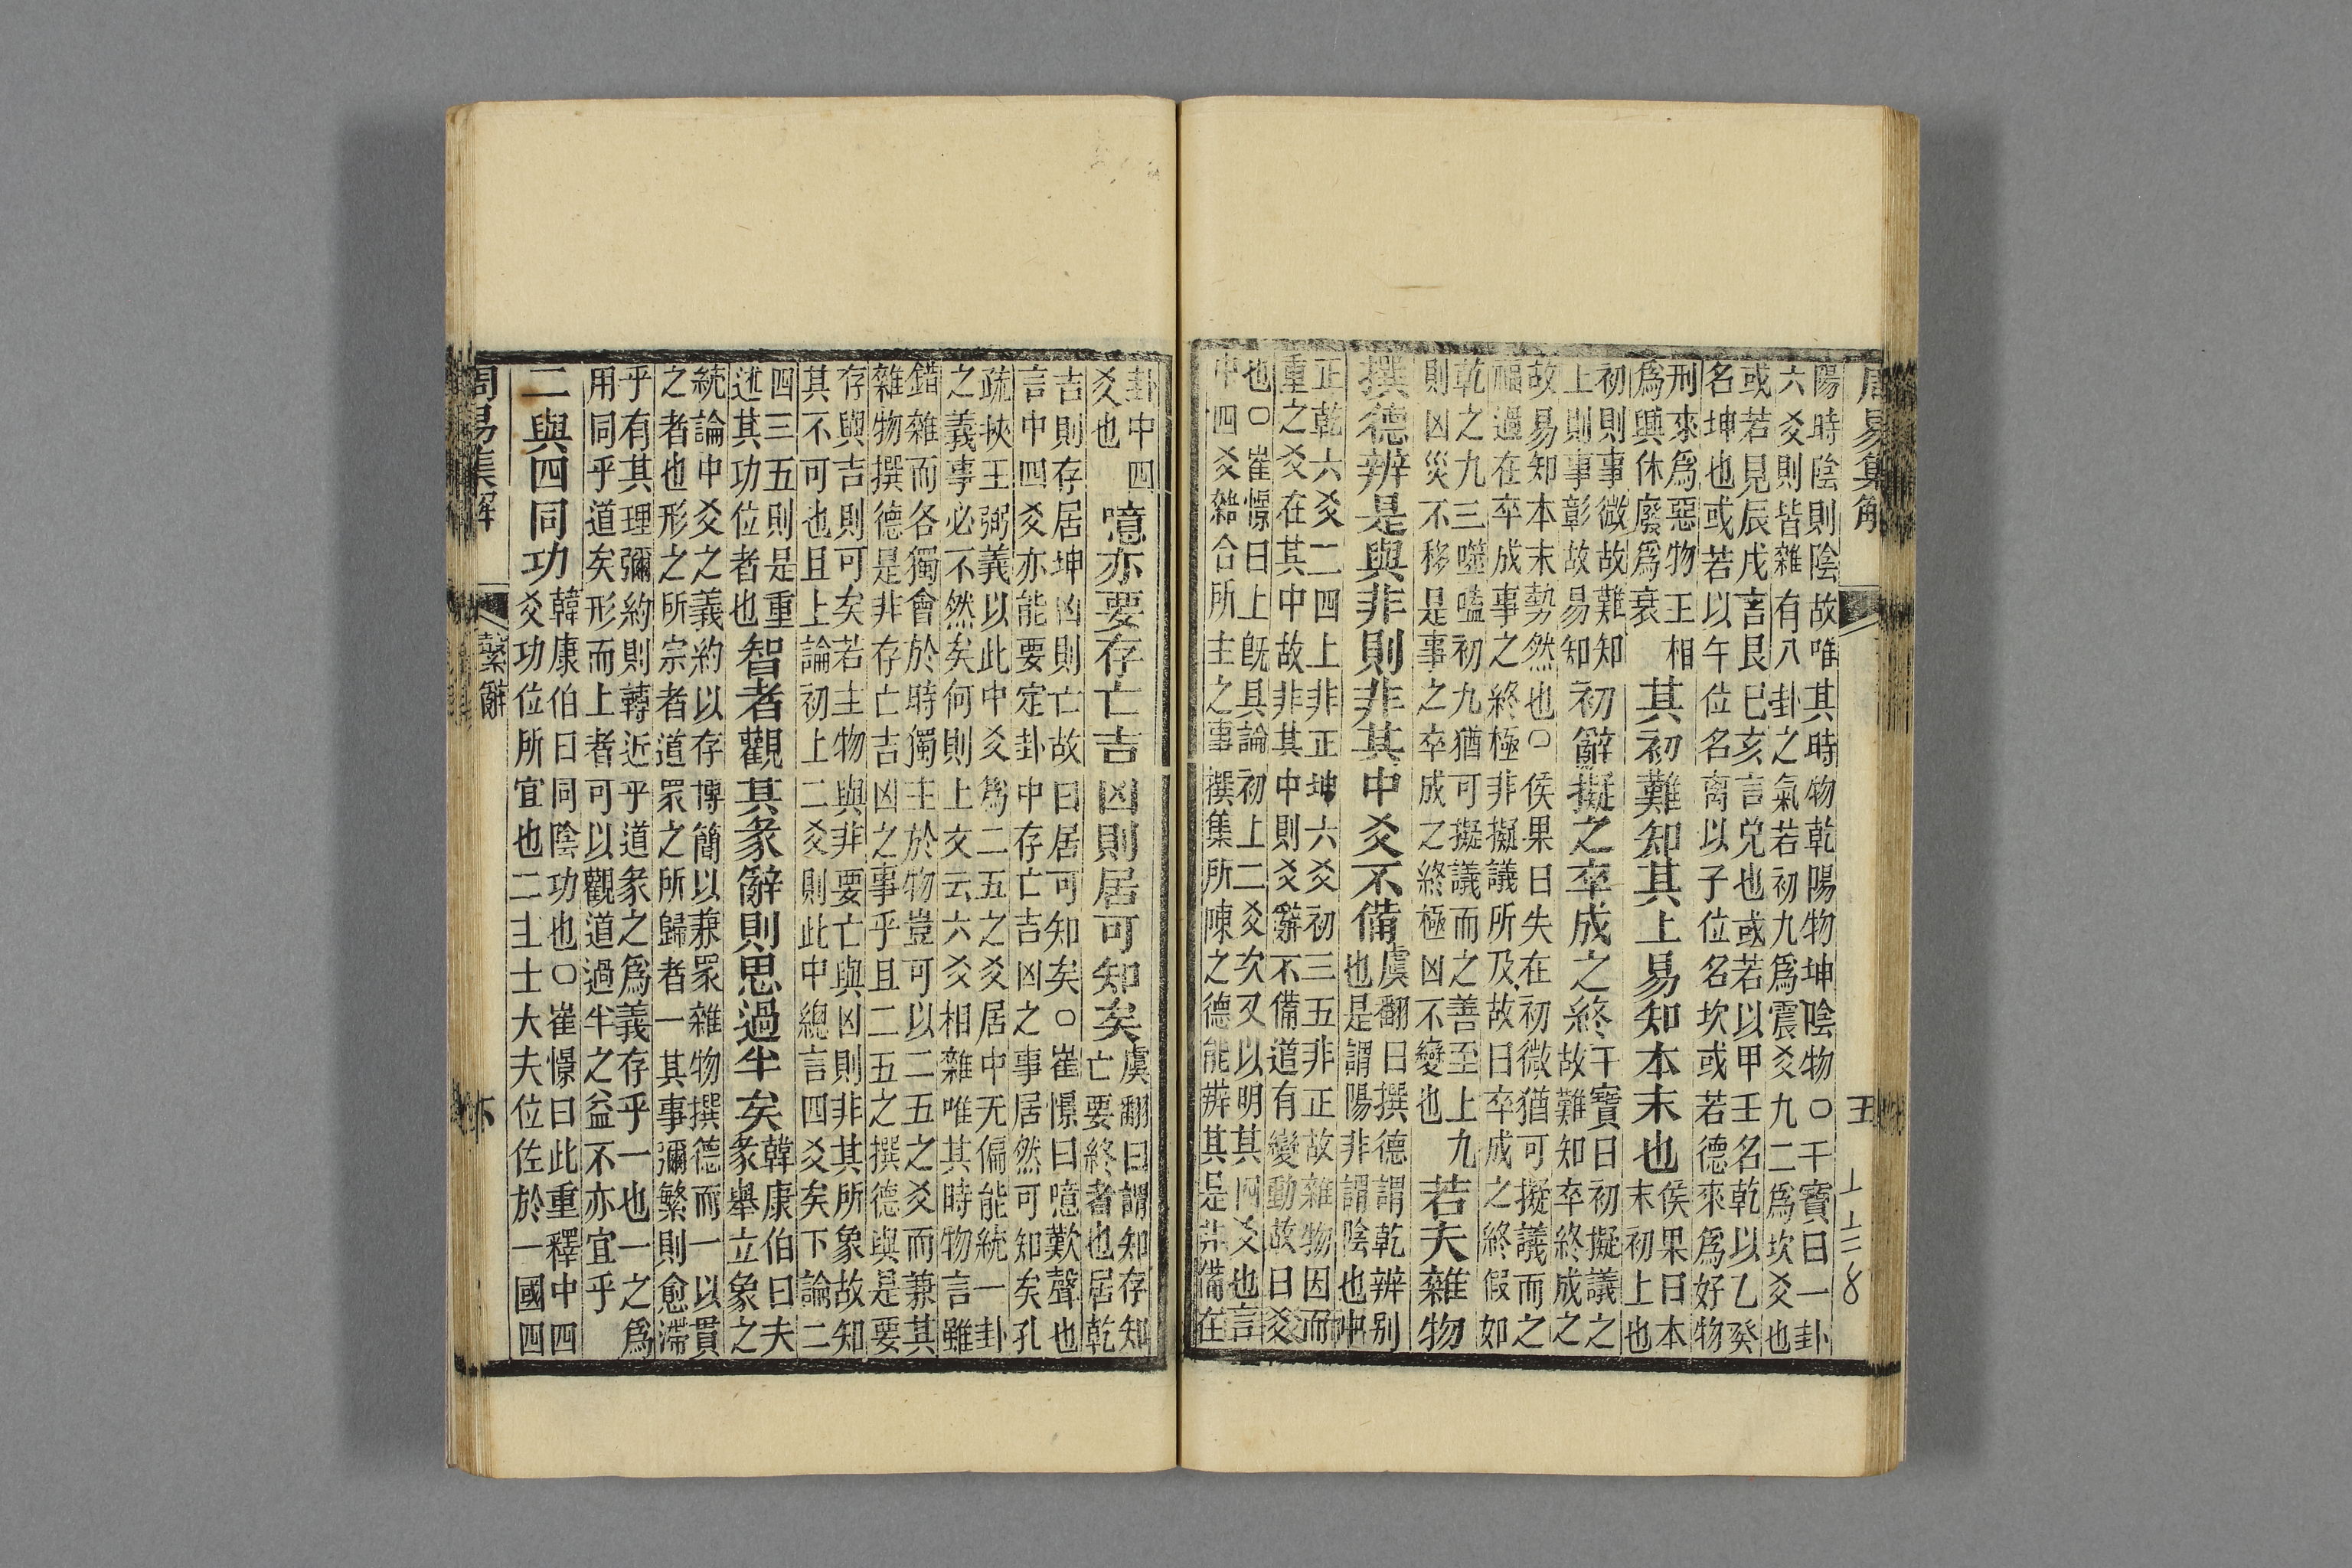 周易集解
五
陽時陰則陰故唯其時物乾陽物坤陰物○干寶曰一卦
六爻則皆雜有八卦之氣若初九爲震爻九二爲坎爻也
或若見辰戌言艮巳亥言兌也或若以甲壬名乾以乙癸
名坤也或若以午位名离以子位名坎或若德來爲好物
刑來爲惡物王相
爲興休廢爲衰
其初難知其上易知本末也
侯果曰本
末初上也
初則事微故難知
上則事彰故易知
初辭擬之卒成之終
干寶曰初擬議之
故難知卒終成之
故易知本末勢然也○侯果曰失在初微猶可擬議而之
福過在卒成事之終極非擬議所及故曰卒成之終假如
乾之九三噬嗑初九猶可擬議而之善至上九
則凶災不移是事之卒成之終極凶不變也
若夫雜物
撰德辨是與非則非其中爻不備
虞翻曰撰德謂乾辨别
也是謂陽非謂陰也中
正乾六爻二四上非正坤六爻初三五非正故雜物因而
重之爻在其中故非其中則爻辭不備道有變動故曰爻
也○崔憬曰上既具論初上二爻次又以明其四爻也言
中四爻雜合所主之事撰集所陳之德能辨其是非備在
卦中四
爻也
噫亦要存亡吉凶則居可知矣
虞翻曰謂知存知
亡要終者也居乾
吉則存居坤凶則亡故曰居可知矣○崔憬曰噫歎聲也
言中四爻亦能要定卦中存亡吉凶之事居然可知矣孔
疏挾王弼義以此中爻爲二五之爻居中无偏能統一卦
之義事必不然矣何則上文云六爻相雜唯其時物言雖
錯雜而各獨會於時獨主於物豈可以二五之爻而兼其
雜物撰德是非存亡吉凶之事乎且二五之撰德與是要
存與吉則可矣若主物與非要亡與凶則非其所象故知
其不可也且上論初上二爻則此中總言四爻矣下論二
四三五則是重
述其功位者也
智者觀其彖辭則思過半矣
韓康伯曰夫
彖舉立象之
統論中爻之義約以存博簡以兼衆雜物撰德而一以貫
之者也形之所宗者道衆之所歸者一其事彌繁則愈滯
乎有其理彌約則轉近乎道彖之爲義存乎一也一之爲
用同乎道矣形而上者可以觀道過半之益不亦宜乎
二與四同功
韓康伯曰同陰功也○崔憬曰此重釋中四
爻功位所宜也二主士大夫位佐於一國四
周易集解
繫辭